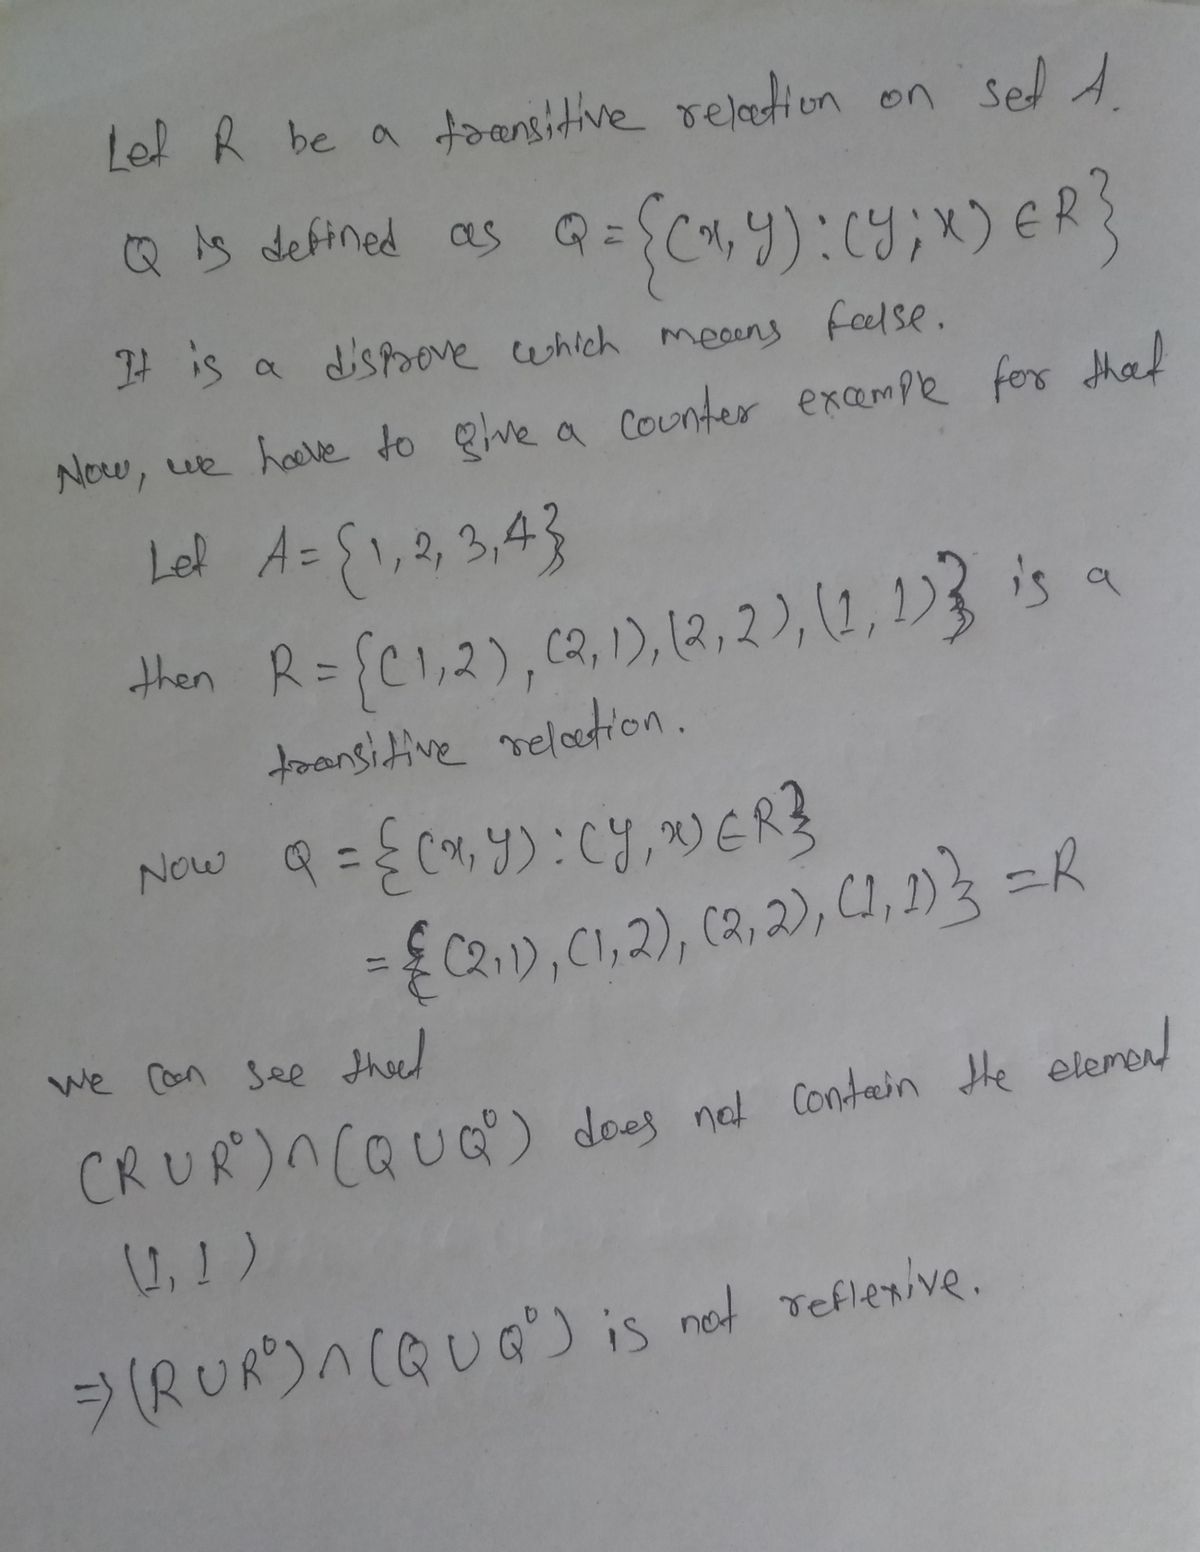 Let R be a transitive relation on set A.
Q is defined as Q = {(x, y) : (y, x) ∈ R}
It is a disprove which means false.
Now, we have to give a counter example for that
Let A = {1, 2, 3, 4}
then R = {(1,2), (2,1), (2,2), (1,1)} is a
transitive relation.
Now Q = {(x, y) : (y, x) ∈ R}
= {(2,1), (1,2), (2,2), (1,1)} = R
we can see that
(R ∪ R⁰) ∩ (Q ∪ Q⁰) does not contain the element
(1, 1)
⇒ (R ∪ R⁰) ∩ (Q ∪ Q⁰) is not reflexive.